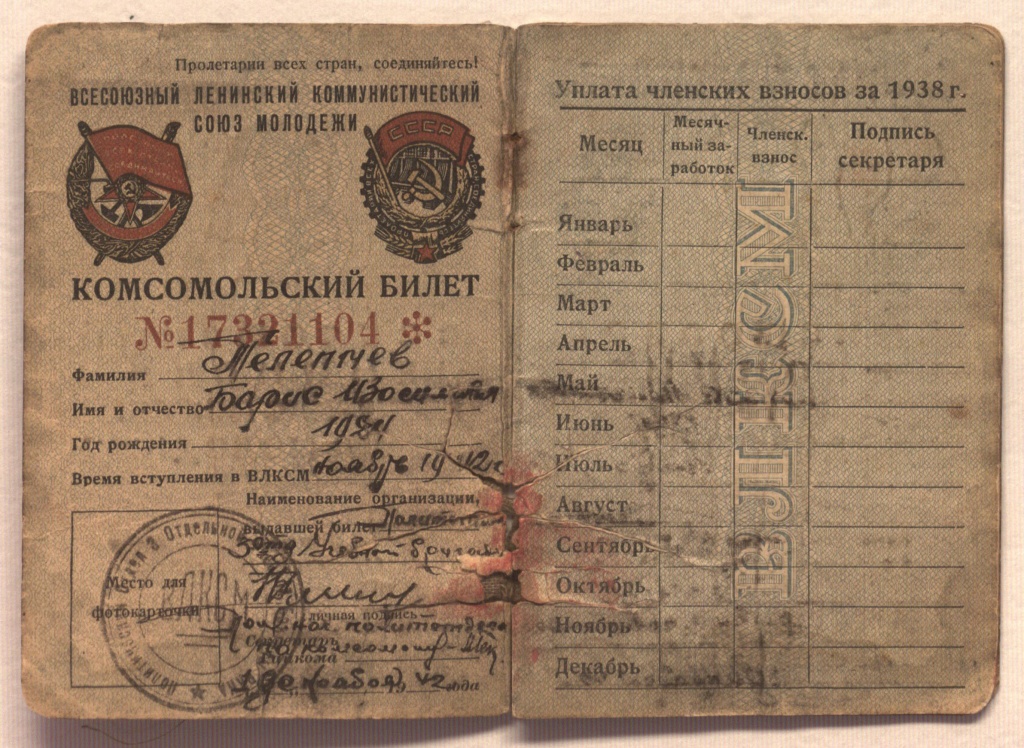 Пролетарии всех стран, соединяйтесь!
ВСЕСОЮЗНЫЙ ЛЕНИНСКИЙ КОММУНИСТИЧЕСКИЙ
СОЮЗ МОЛОДЕЖИ
СССР
КОМСОМОЛЬСКИЙ БИЛЕТ
№17321104 *
Фамилия
Имя и отчество Борис
Год рождения 1924
Время вступления в ВЛКСМ ноябрь 1942
Наименование организации,
выдавшей билет
Учебной бригады
Место для
фотокарточки
личная подпись
Секретарь
Райкома
декабря 1942 года
Уплата членских взносов за 1938 г.
Месяц
Месяч-
ный за-
работок
Членск.
взнос
Подпись
секретаря
Январь
Февраль
Март
Апрель
Май
Июнь
Июль
Август
Сентябрь
Октябрь
Ноябрь
Декабрь
ВЛКСМ